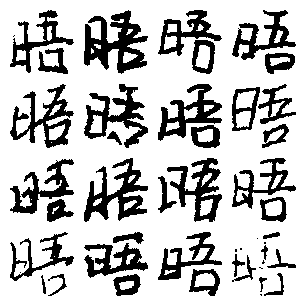 晤晤晤晤
晤晤晤晤
晤晤晤晤
晤晤晤晤